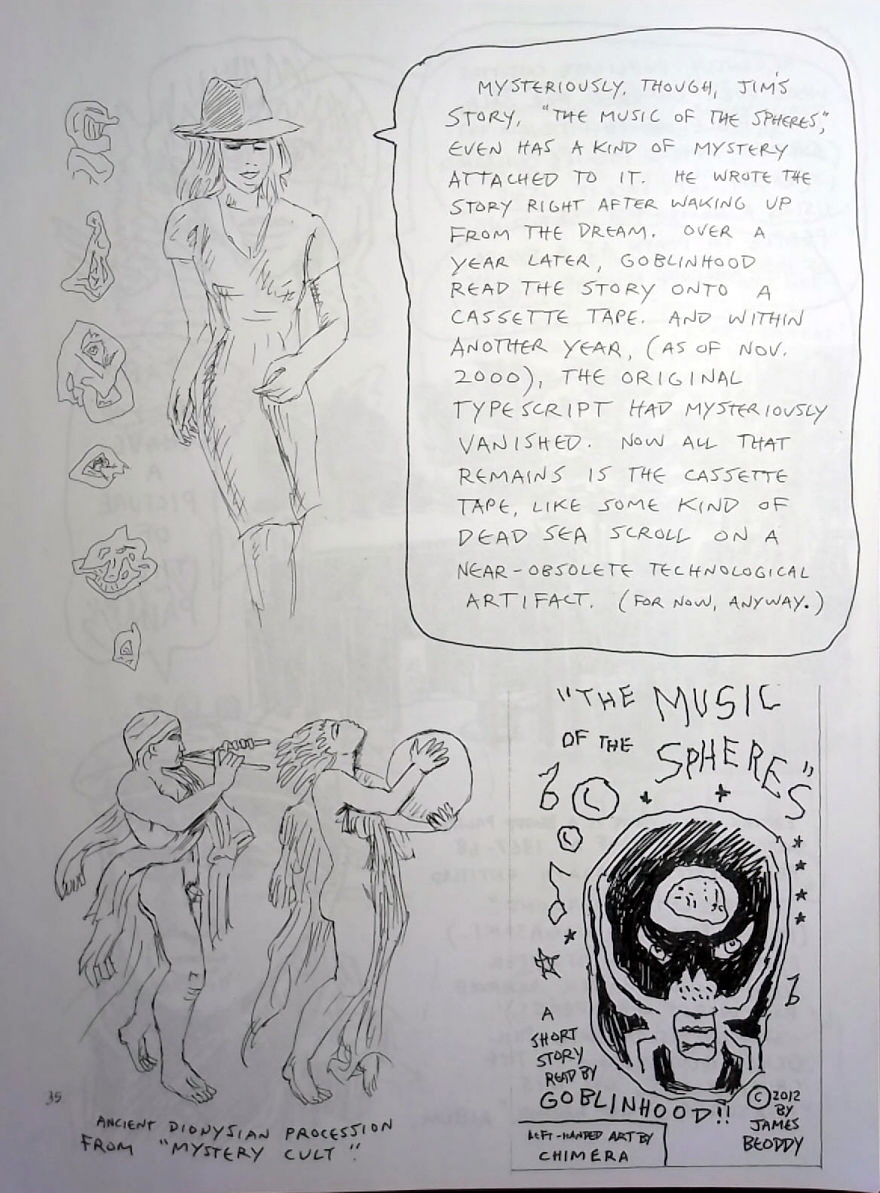 MYSTERIOUSLY, THOUGH, JIM'S
STORY, "THE MUSIC OF THE SPHERES",
EVEN HAS A KIND OF MYSTERY
ATTACHED TO IT. HE WROTE THE
STORY RIGHT AFTER WAKING UP
FROM THE DREAM. OVER A
YEAR LATER, GOBLINHOOD
READ THE STORY ONTO A
CASSETTE TAPE. AND WITHIN
ANOTHER YEAR, (AS OF NOV.
2000), THE ORIGINAL
TYPESCRIPT HAD MYSTERIOUSLY
VANISHED. NOW ALL THAT
REMAINS IS THE CASSETTE
TAPE, LIKE SOME KIND OF
DEAD SEA SCROLL ON A
NEAR-OBSOLETE TECHNOLOGICAL
ARTIFACT. (FOR NOW, ANYWAY.)
"THE MUSIC
OF THE SPHERES"
A
SHORT
STORY
READ BY
GOBLINHOOD!!
© 2012
BY
JAMES
BEODDY
LEFT-HANDED ART BY
CHIMERA
35
ANCIENT DIONYSIAN PROCESSION
FROM "MYSTERY CULT"